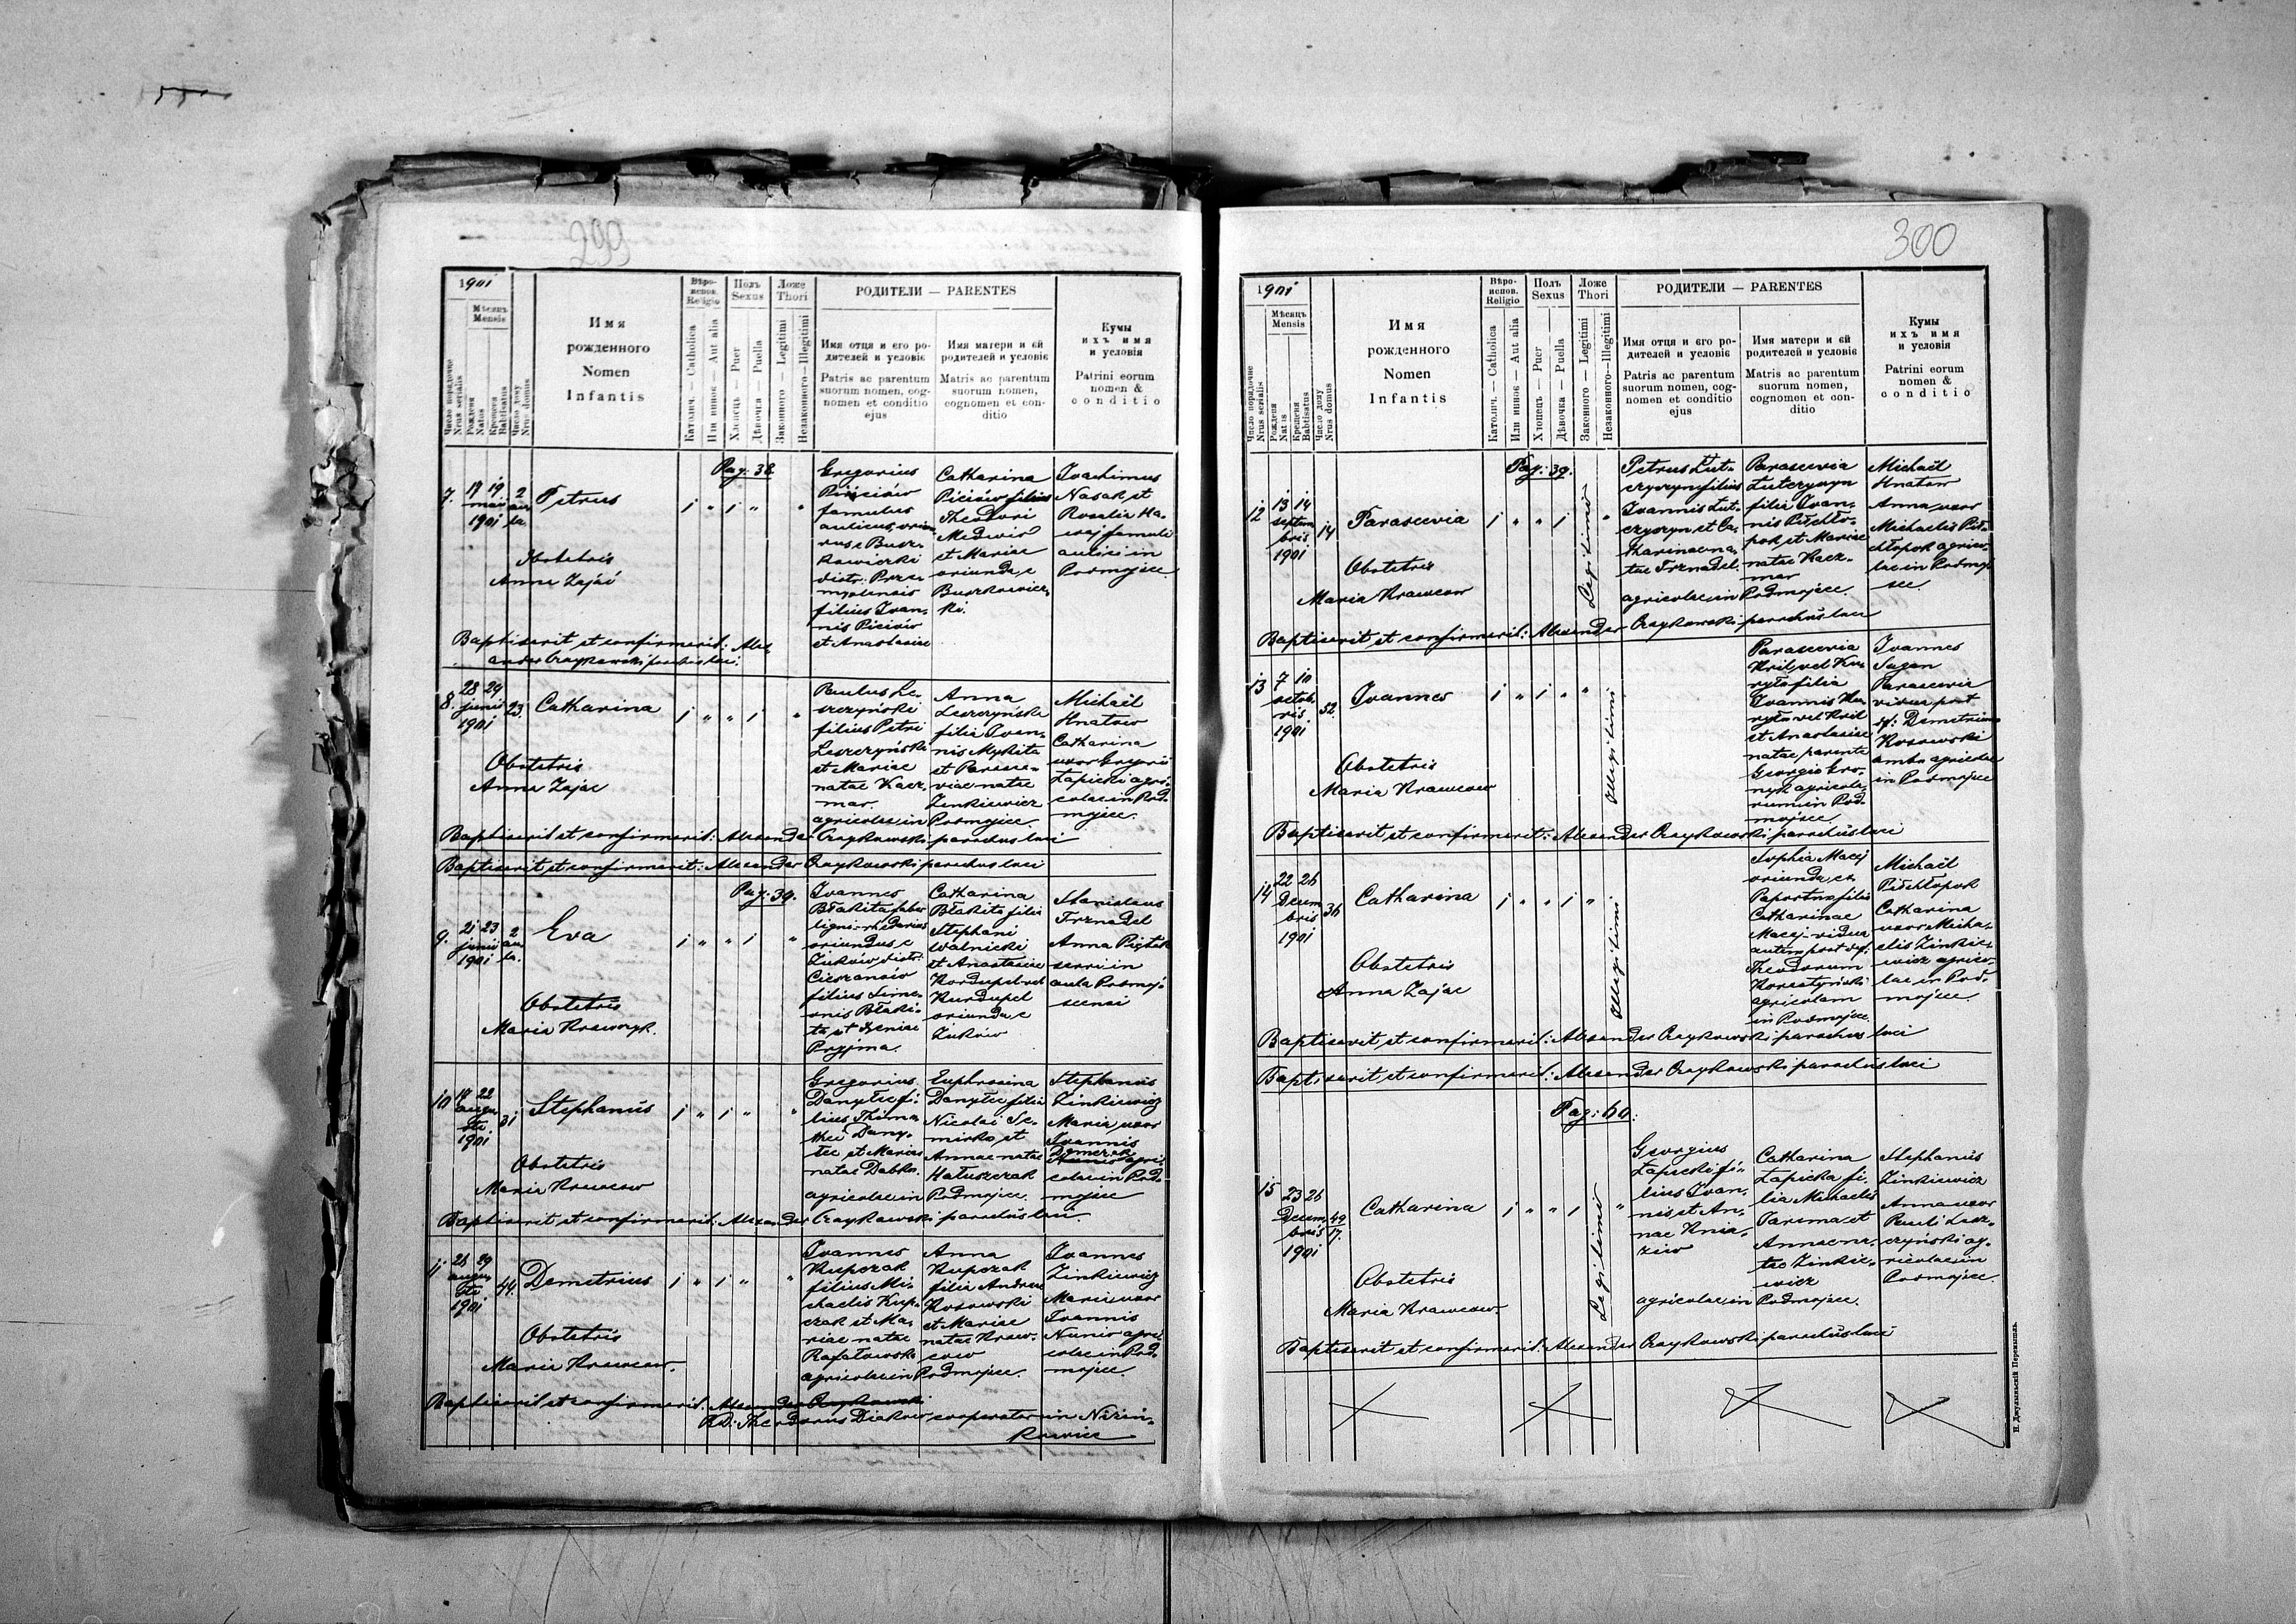 299
1901
Мѣсяць
Mensis
Число порядочне
Nrus serialis
Рождєня
Natus
Крещєня
Babtisatus
Число дому
Nrus domus
Имя
рожденного
Nomen
Infantis
Вѣро-
испов.
Religio
Католич. — Catholica
Или инноє — Aut alia
Полъ
Sexus
Хлопєць — Puer
Дѣвочка — Puella
Ложе
Thori
Законного — Legitimi
Незаконного — Illegitimi
РОДИТЕЛИ — PARENTES
Имя отця и єго ро-
дителей и условіє
Patris ac parentum
suorum nomen, cog-
nomen et conditio
ejus
Имя матери и єй
родителей и условіє
Matris ac parentum
suorum nomen,
cognomen et con-
ditio
Кумы
ихъ имя
и условія
Patrini eorum
nomen &
conditio
Pag: 38
7.
17 19
maii
1901
2
au-
la.
Petrus
Obstetrix
Anna Zając
Gregorius
famulus
aulicus, oriun-
filius Ivan-
nis Piciów
et Anastasiae
Catharina
Piciów filia
Theodori
Medwid
et Mariae
oriunda e
Buszkowicz-
ki.
Joachimus
Nasak et
Rosalia Ha-
waj famuli
aulici in
Podmojsce.
Baptisavit et confirmavit: Alex-
ander Czajkowski parochus loci.
8.
28 29
junii
1901
23.
Catharina
Obstetrix
Anna Zając
Paulus Le-
szczyński
filius Petri
Leszczyński
et Mariae
natae Kacz-
mar.
agricolae in
Anna
Leszczyńska
filia Ivan-
nis Mykita
et Parasce-
viae natae
Zinkiewicz
Podmojsce.
Michaël
Hnatow
Catharina
uxor Gregorii
Łapicki agri-
colae in Pod-
mojsce.
Baptisavit et confirmavit: Alexander Czajkowski parochus loci
Baptisavit et confirmavit: Alexander Czajkowski parochus loci
Pag: 39.
9.
21 23
junii
1901
2
au-
la.
Eva
Obstetrix
Maria Krawczyk.
Ivannes
Błakita faber
ligni-rhedarius
oriundus e
Żuków distr:
Cieszanów
filius Sime-
onis Błaki-
ta et Xeniae
Pryjma.
Catharina
Błakita filia
Stephani
Walnicki
et Anastasiae
Kordupel vel
Kurdupel
oriunda e
Żuków
Stanislaus
Trznadel
Anna Piątek
servi in
aula Podmoj-
scensi
10
17 22
augu-
sti
1901
31
Stephanus
Obstetrix
Maria Krawcow
Gregorius
Danyłec fi-
lius Thimo-
thei Dany-
łec et Mariae
natae Dabko.
agricolae in
Euphrosina
Danyłec filia
Nicolai Se-
mirko et
Annae natae
Hałuszczak
Podmojsce.
Stephanus
Zinkiewicz
Maria uxor
Ivannis
agri-
colae in Pod-
mojsce
Baptisavit et confirmavit: Alexander Czajkowski parochus loci.
11
28 29
augu-
sti
1901
44.
Demetrius
Obstetrix
Maria Krawcow.
Ivannes
Kupczak
filius Mi-
chaelis Kup-
czak et Ma-
riae natae
Rafałowska
agricolae in
Anna
Kupczak
filia Andreae
Kosowski
et Mariae
natae Kraw-
cow
Podmojsce.
Ivannes
Zinkiewicz
Maria uxor
Ivannis
Nunio agri-
colae in Pod-
mojsce.
Baptisavit et confirmavit: Alexander Czajkowski
AD: Theodorus Diakow cooperator in Nizin-
kowice
300
1901
Мѣсяць
Mensis
Число порядочне
Nrus serialis
Рождєня
Natus
Крещєня
Babtisatus
Число дому
Nrus domus
Имя
рожденного
Nomen
Infantis
Вѣро-
испов.
Religio
Католич. — Catholica
Или инноє — Aut alia
Полъ
Sexus
Хлопєць — Puer
Дѣвочка — Puella
Ложе
Thori
Законного — Legitimi
Незаконного — Illegitimi
РОДИТЕЛИ — PARENTES
Имя отця и єго ро-
дителей и условіє
Patris ac parentum
suorum nomen, cog-
nomen et conditio
ejus
Имя матери и єй
родителей и условіє
Matris ac parentum
suorum nomen,
cognomen et con-
ditio
Кумы
ихъ имя
и условія
Patrini eorum
nomen &
conditio
Pag: 39.
12
13 14
septem-
bris
1901
14
Parascevia
Obstetrix
Maria Krawcow
Legitimi
Petrus Łut-
czyszyn filius
Ivannis Łut-
czyszyn et Ca-
tharinae na-
tae Trznadel.
agricolae in
Parascevia
filia Ivan-
nis Piłchło-
pok et Mariae
natae Kacz-
mar
Podmojsce.
Michaël
Hnatow
Anna uxor
Michaelis Pił-
chłopok agrico-
lae in Podmoj-
sce.
Baptisavit et confirmavit: Alexander Czajkowski parochus loci
13
7 10
octob-
ris
1901
52.
Ivannes
Obstetrix
Maria Krawcow
Illegitimi
Parascevia
Kril vel Ku-
ryło filia
Ivannis Ku-
ryło vel Kril
et Anastasiae
natae parente
Georgio Hro-
nyk agricola-
rum in Pod-
mojsce.
Ivannes
Sagan
Parascevia
vidua post
df: Demetrium
Kosowski
ambo agricolae
in Podmojsce
Baptisavit et confirmavit: Alexander Czajkowski parochus loci
14
22 26
Decem-
bris
1901
36
Catharina
Obstetrix
Anna Zając
Illegitimi
Sophia Macij
oriunda ex
Paportno filia
Catharinae
Macij - vidua
autem post df:
Theodorum
Korostyński
agricolam
in Podmojsce.
Michaël
Piłchłopok
Catharina
uxor Micha-
elis Zinkie-
wicz agrico-
lae in Pod-
mojsce.
Baptisavit et confirmavit: Alexander Czajkowski parochus loci
Baptisavit et confirmavit: Alexander Czajkowski parochus loci
Pag: 40:
15
23 26
Decem-
bris
1901
49
17.
Catharina
Obstetrix
Maria Krawcow
Legitimi
Georgius
Łapicki fi-
lius Ivan-
nis et An-
nae Knia-
ziw
agricolae in
Catharina
Łapicka fi-
lia Michaelis
Jarema et
Annae na-
tae Zinkie-
wicz
Podmojsce.
Stephanus
Zinkiewicz
Anna uxor
Pauli Lesz-
czyński ag-
ricolae in
Podmojsce.
Baptisavit et confirmavit: Alexander Czajkowski parochus loci
Н. Джулыньскій Перемышль.